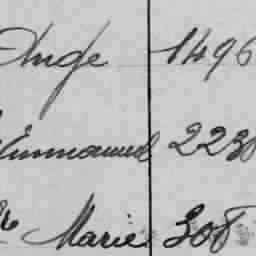 Ange 1496
Emmanuel 2238
Marie 308